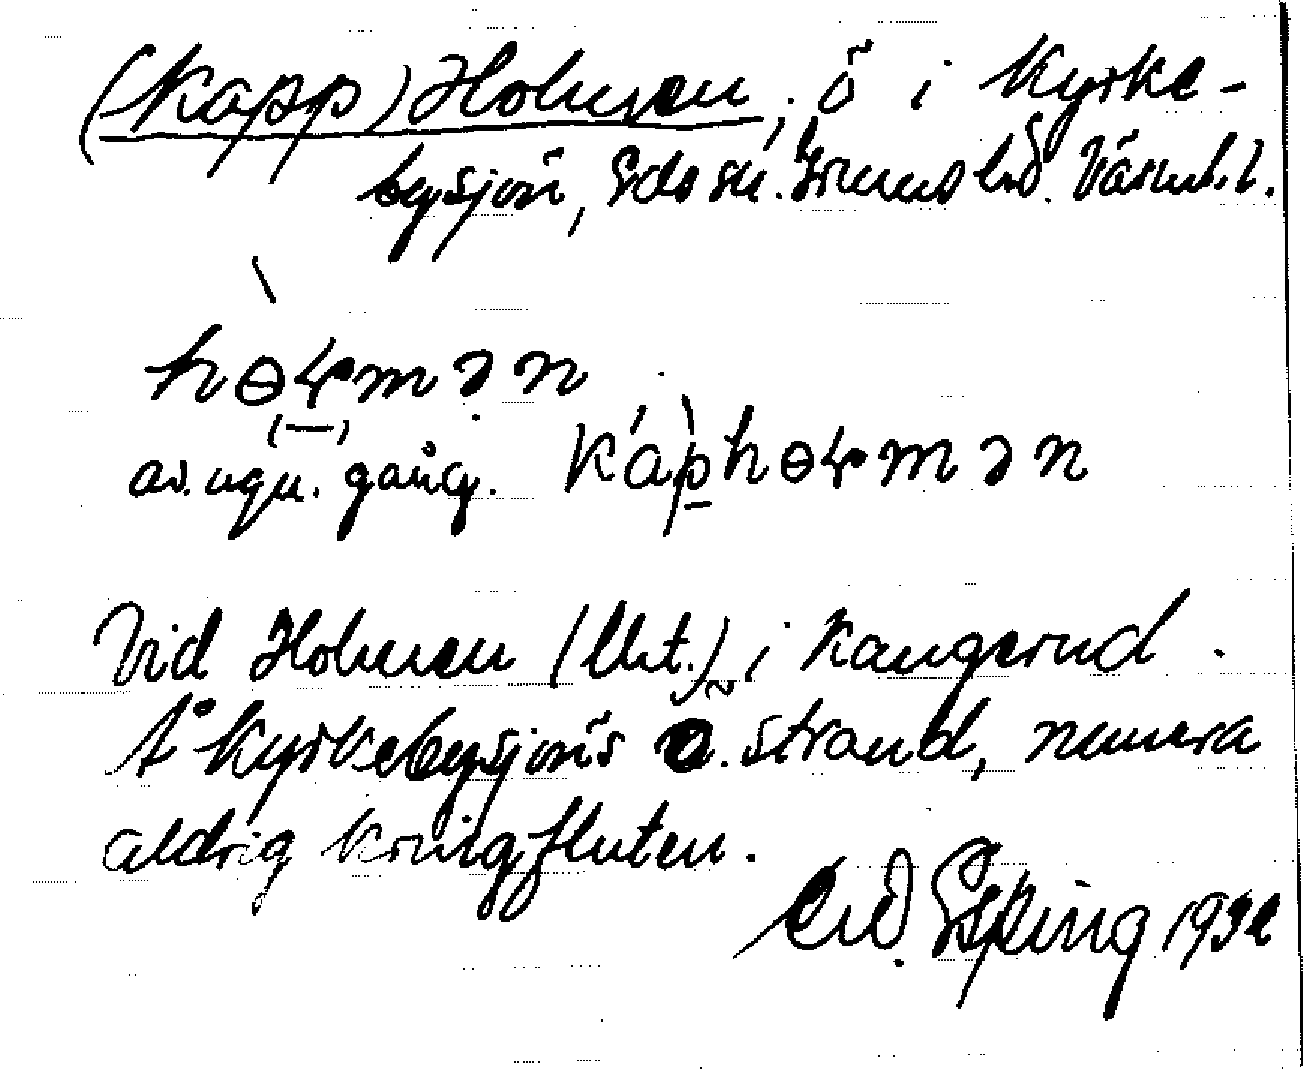 (Kapp) Holmen, ö i Kyrke-
bysjön, Eds sn. Grums hd. Värml. l.
hɵɽmən
av. ngn. gång. káphɵɽmən
Vid Holmen (lht.) i Kangerud.
Å Kyrkebysjöns ö. strand, numera
aldrig kringfluten.
End. Epling 1932